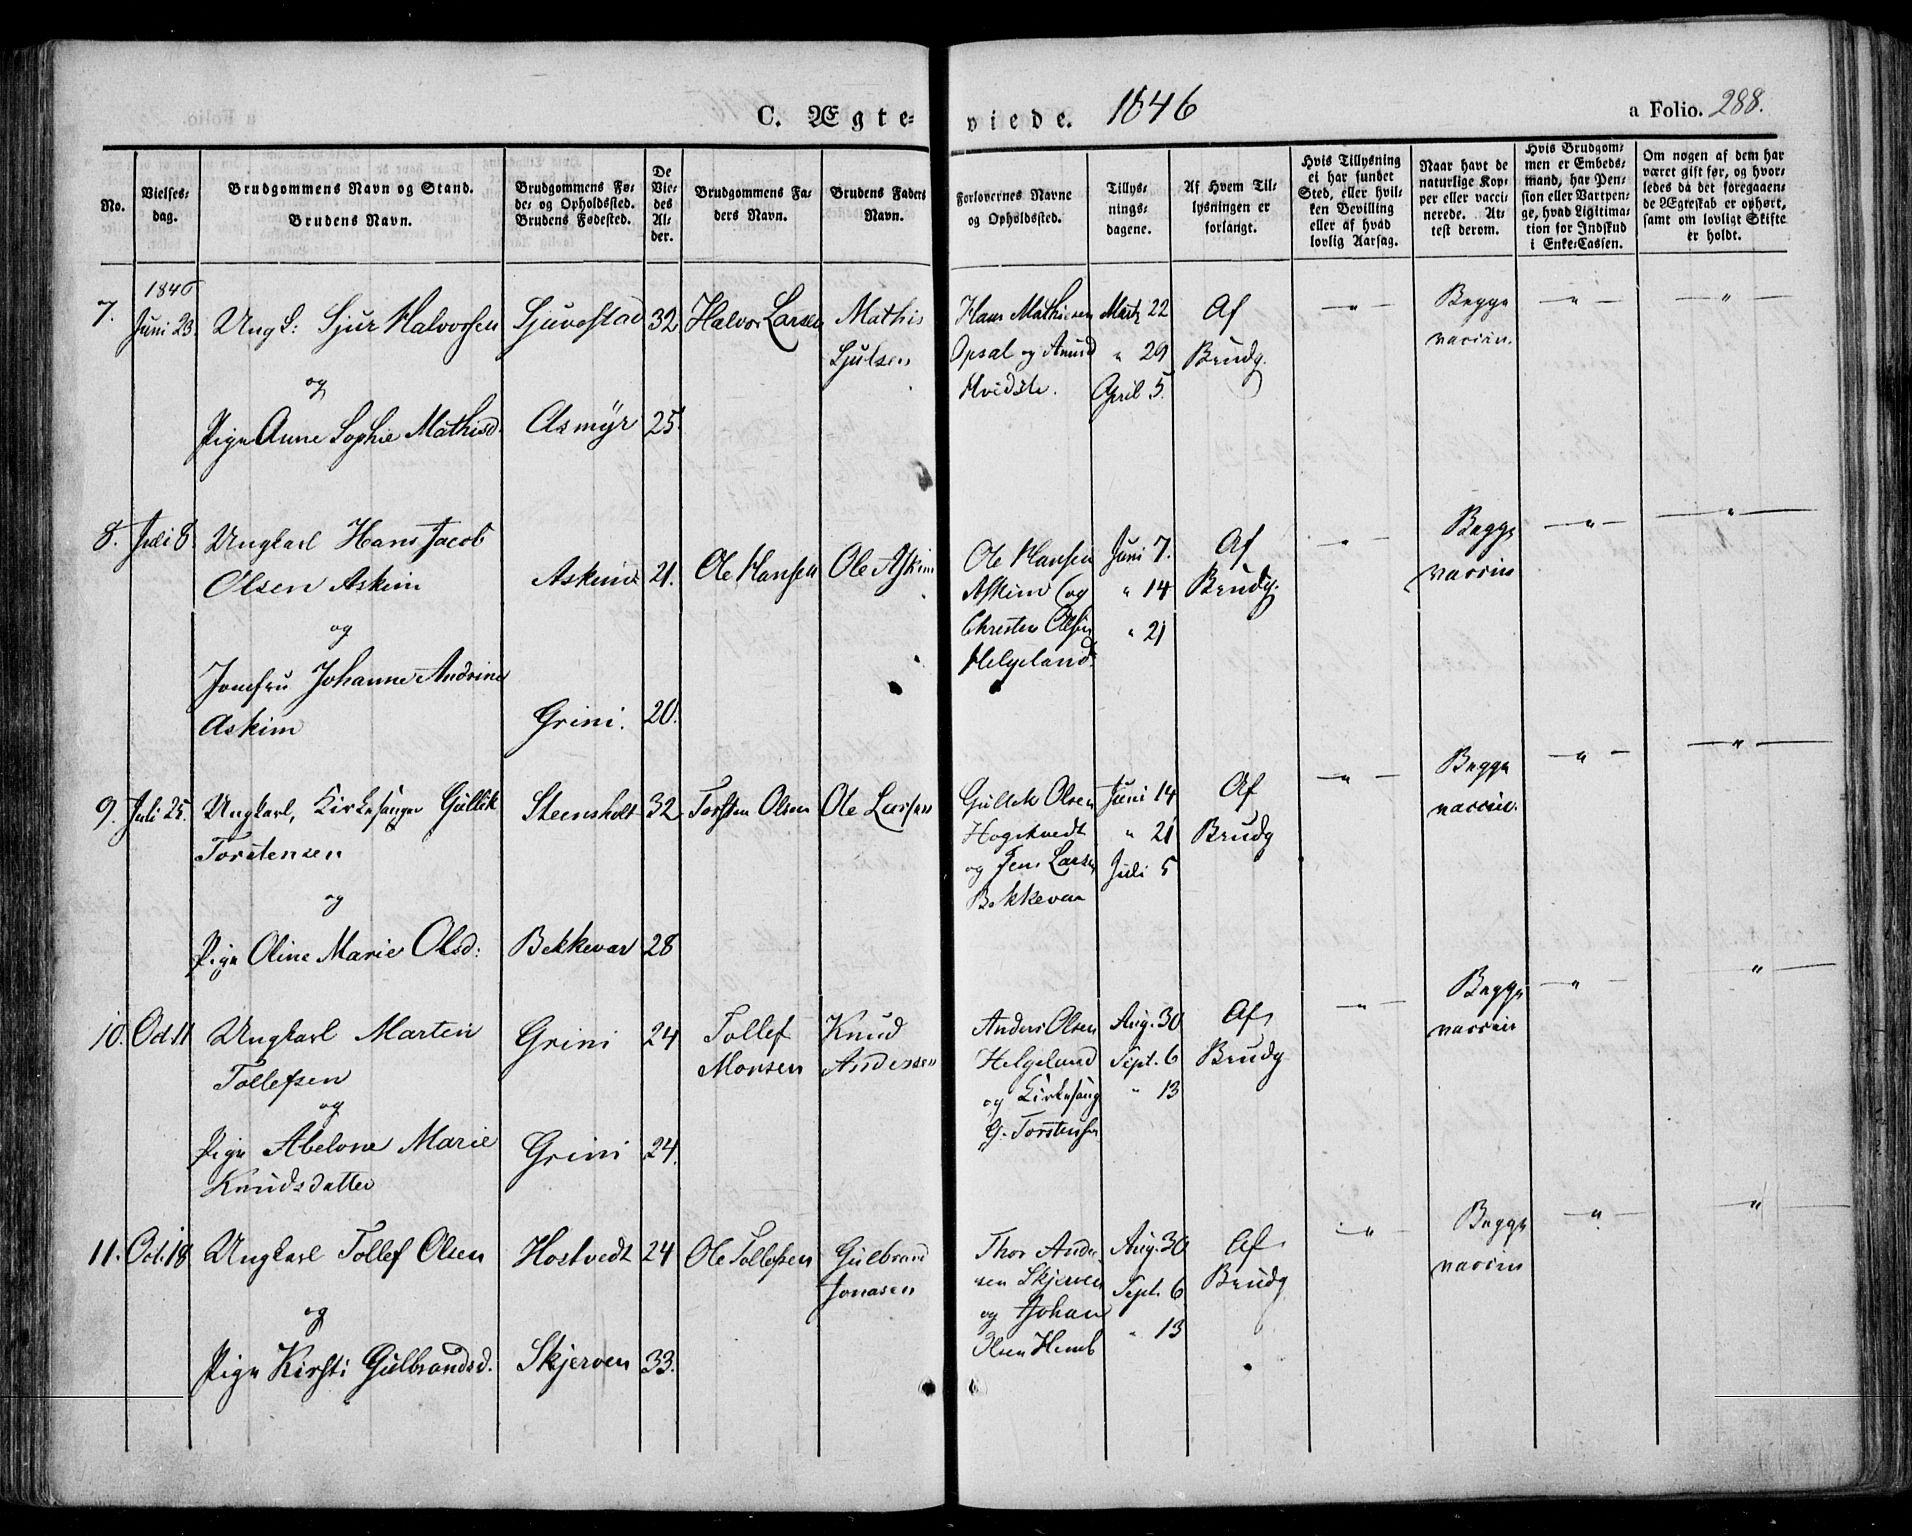 C. Ægte-viede. 1846
a Folio. 288.
No.
Vielses-
dag.
Brudgommens Navn og Stand.
Brudens Navn.
Brudgommens Fø-
de- og Opholdssted.
Brudens Fødested.
De
Vie-
des
Al-
der.
Brudgommens Fa-
ders Navn.
Brudens Faders
Navn.
Forlovernes Navne
og Opholdssted.
Tillys-
nings-
dagene.
Af Hvem Til-
lysningen er
forlangt.
Hvis Tillysning
ei har fundet
Sted, eller hvil-
ken Bevilling
eller af hvad
lovlig Aarsag.
Naar havt de
naturlige Kop-
per eller vacci-
nerede. At-
test derom.
Hvis Brudgom-
men er Embeds-
mand, har Pen-
sion eller Vartpen-
ge, hvad Ligitima-
tion for Indskud
i Enke-Cassen.
Om nogen af dem har
været gift før, og hvor-
ledes da det foregaaen-
de Ægteskab er ophørt,
samt om lovligt Skifte
er holdt.
1846
7. Juni 23. Ungk: Sjur Halvorsen Sjuvestad 32 Halvor Larsen Mathis Hans Mathiesen Martz 22 Af — " — Begge — " — — " —
Sjulsen Opsal og Amund " 29 Brudg. vaccin.
og Hvidste. April 5.
Pige Anne Sophie Mathisd. Asmyr 25.
8. Juli 8. Ungkarl Hans Jacob Ole Hansen Juni 7. Af — " — Begge — " — — " —
Olsen Askim Askim 21. Ole Hansen Ole Askim Askim og " 14 Brudg. vaccin
og Christen Olsen " 21
Jomfru Johanne Andrine Helgeland.
Askim Grini. 20.
9. Juli 25. Ungkarl, Kirkesanger Gullik Steensholt 32 Torsten Olsen Ole Larsen Gullik Olsen Juni 14 Af — " — Begge — " — — " —
Torstensen Hogstvedt " 21 Brudg vaccin.
og og Jens Larsen Juli 5
Bekkevar
Pige Oline Marie Olsd: Bekkevar 28
10. Oct. 11 Ungkarl Marten Grini 24 Tollef Knud Anders Olsen Aug. 30 Af — " — Begge — " — — " —
Tollefsen Monsen Andersen Helgeland Sept. 6 Brudg vaccin
og og Kirkesang " 13
Pige Abelone Marie Grini 24. G. Torstensen
Knudsdatter
11. Oct. 18 Ungkarl Tollef Olsen Hostvedt 24 Ole Tollefsen Gulbrand Thor Ander- Aug. 30 Af — " — Begge — " — — " —
Jonasen sen Skjerven Sept. 6 Brudg vaccin
og og Johan " 13
Pige Kirsti Gulbrandsd. Skjerven 33. Olsen Hemb